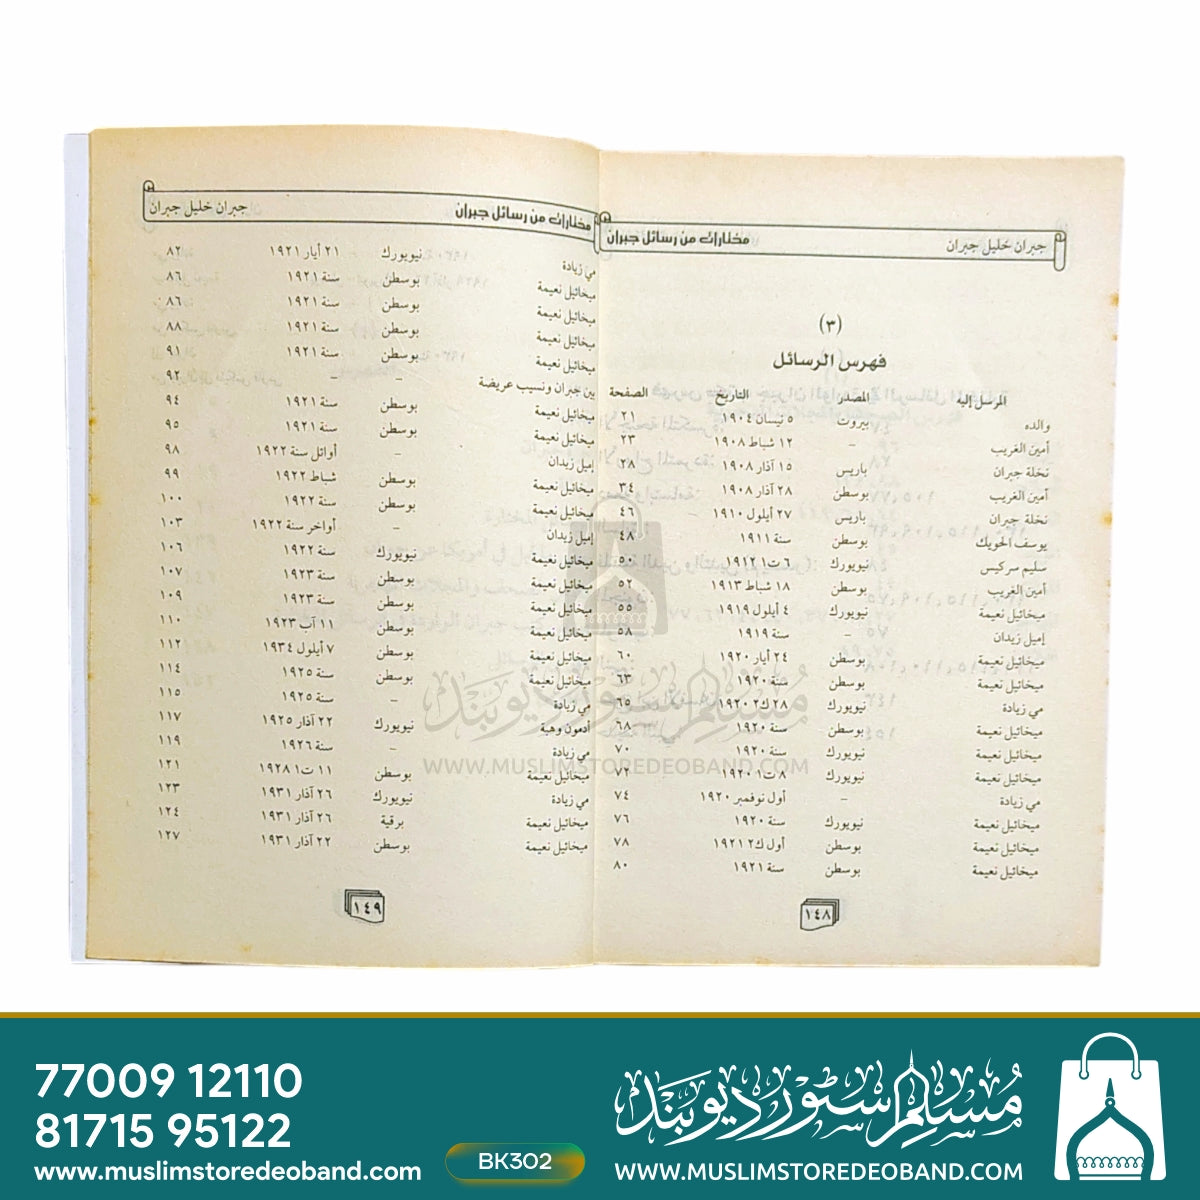 مختارات من رسائل جبران جبران خليل جبران
(٣)
فهرس الرسائل
المرسل إليه المصدر التاريخ الصفحة
والده بيروت ٥ نيسان ١٩٠٤ ٢١
أمين الغريب – ١٢ شباط ١٩٠٨ ٢٣
نخلة جبران باريس ١٥ آذار ١٩٠٨ ٢٨
أمين الغريب بوسطن ٢٨ آذار ١٩٠٨ ٣٤
نخلة جبران باريس ٢٧ أيلول ١٩١٠ ٤٦
يوسف الحويك بوسطن سنة ١٩١١ ٤٨
سليم سركيس نيويورك ٦ ت١ ١٩١٢ ٥٠
أمين الغريب بوسطن ١٨ شباط ١٩١٣ ٥٢
ميخائيل نعيمة نيويورك ٤ أيلول ١٩١٩ ٥٥
إميل زيدان – سنة ١٩١٩ ٥٨
ميخائيل نعيمة بوسطن ٢٤ أيار ١٩٢٠ ٦٠
ميخائيل نعيمة بوسطن سنة ١٩٢٠ ٦٣
مي زيادة نيويورك ٢٨ ك٢ ١٩٢٠ ٦٥
ميخائيل نعيمة بوسطن سنة ١٩٢٠ ٦٨
ميخائيل نعيمة نيويورك سنة ١٩٢٠ ٧٠
ميخائيل نعيمة نيويورك ٨ ت١ ١٩٢٠ ٧٢
مي زيادة – أول نوفمبر ١٩٢٠ ٧٤
ميخائيل نعيمة نيويورك سنة ١٩٢٠ ٧٦
ميخائيل نعيمة بوسطن أول ك٢ ١٩٢١ ٧٨
ميخائيل نعيمة بوسطن سنة ١٩٢١ ٨٠
١٤٨
مختارات من رسائل جبران جبران خليل جبران
مي زيادة نيويورك ٢١ أيار ١٩٢١ ٨٢
ميخائيل نعيمة بوسطن سنة ١٩٢١ ٨٦
ميخائيل نعيمة بوسطن سنة ١٩٢١ ٨٦
ميخائيل نعيمة بوسطن سنة ١٩٢١ ٨٨
ميخائيل نعيمة بوسطن سنة ١٩٢١ ٩١
بين جبران ونسيب عريضة – – ٩٢
ميخائيل نعيمة بوسطن سنة ١٩٢١ ٩٤
ميخائيل نعيمة بوسطن سنة ١٩٢١ ٩٥
إميل زيدان – أوائل سنة ١٩٢٢ ٩٨
ميخائيل نعيمة بوسطن شباط ١٩٢٢ ٩٩
ميخائيل نعيمة بوسطن سنة ١٩٢٢ ١٠٠
إميل زيدان – أواخر سنة ١٩٢٢ ١٠٣
ميخائيل نعيمة نيويورك سنة ١٩٢٢ ١٠٦
ميخائيل نعيمة بوسطن سنة ١٩٢٣ ١٠٧
ميخائيل نعيمة بوسطن سنة ١٩٢٣ ١٠٩
ميخائيل نعيمة بوسطن ١١ آب ١٩٢٣ ١١٠
ميخائيل نعيمة بوسطن ٧ أيلول ١٩٣٤ ١١٢
ميخائيل نعيمة بوسطن سنة ١٩٢٥ ١١٤
مي زيادة – سنة ١٩٢٥ ١١٥
أدمون وهبة نيويورك ٢٢ آذار ١٩٢٥ ١١٧
مي زيادة – سنة ١٩٢٦ ١١٩
ميخائيل نعيمة بوسطن ١١ ت١ ١٩٢٨ ١٢١
مي زيادة نيويورك ٢٦ آذار ١٩٣١ ١٢٣
ميخائيل نعيمة برقية ٢٦ آذار ١٩٣١ ١٢٤
ميخائيل نعيمة بوسطن ٢٢ آذار ١٩٣١ ١٢٧
١٤٩
مسلم سٹور ديوبند
WWW.MUSLIMSTOREDEOBAND.COM
77009 12110
81715 95122
www.muslimstoredeoband.com
BK302
مسلم سٹور ديوبند
WWW.MUSLIMSTOREDEOBAND.COM